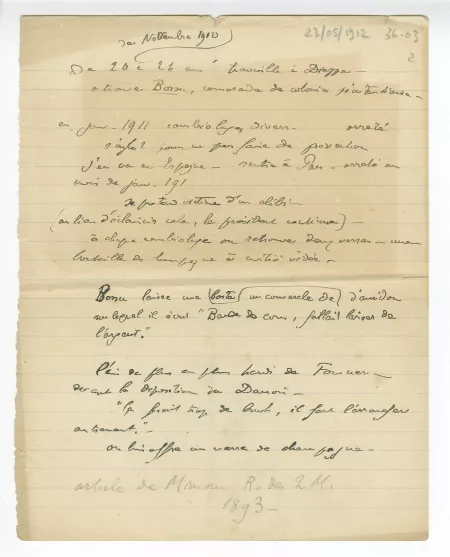 Novembre 1910
23/05/1912 36-03
2
De 20 à 24 ans travaille à Dieppe —
retrouve Bosse, camarade de colonie pénitentiaire —
en janv. 1911 cambriolages divers arrêté
pour ne pas faire de prévention
s'en va en Espagne — rentre à Paris — arrêté au
mois de janv. 191
se prétend victime d'un alibi —
(au lieu d'éclaircir cela, le président continue) —
à chaque cambriolage on retrouve deux verres — une
bouteille de champagne à moitié vidée —
Bosse laisse une (boîte) un couvercle de) d'amidon
sur lequel il écrit "Bande de cons, fallait laisser de
l'argent."
de plus en plus de
devant la déposition de
"Il ferait trop de bruit, il faut l'arranger
autrement." —
on lui offre un verre de champagne —
article de R. des 2 M.
1893 —